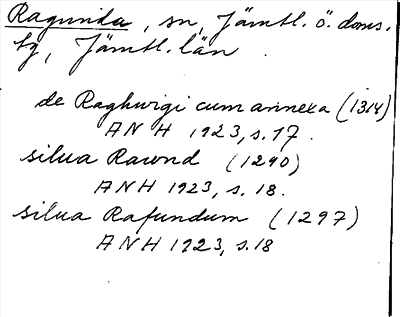 Ragunda, sn, Jämtl. ö. doms.
tg, Jämtl. län.
de Raghwigi cum annexa (1314)
ANH 1923, s. 17.
silua Rawnd (1290)
ANH 1923, s. 18.
silua Rafundum (1297)
ANH 1923, s. 18